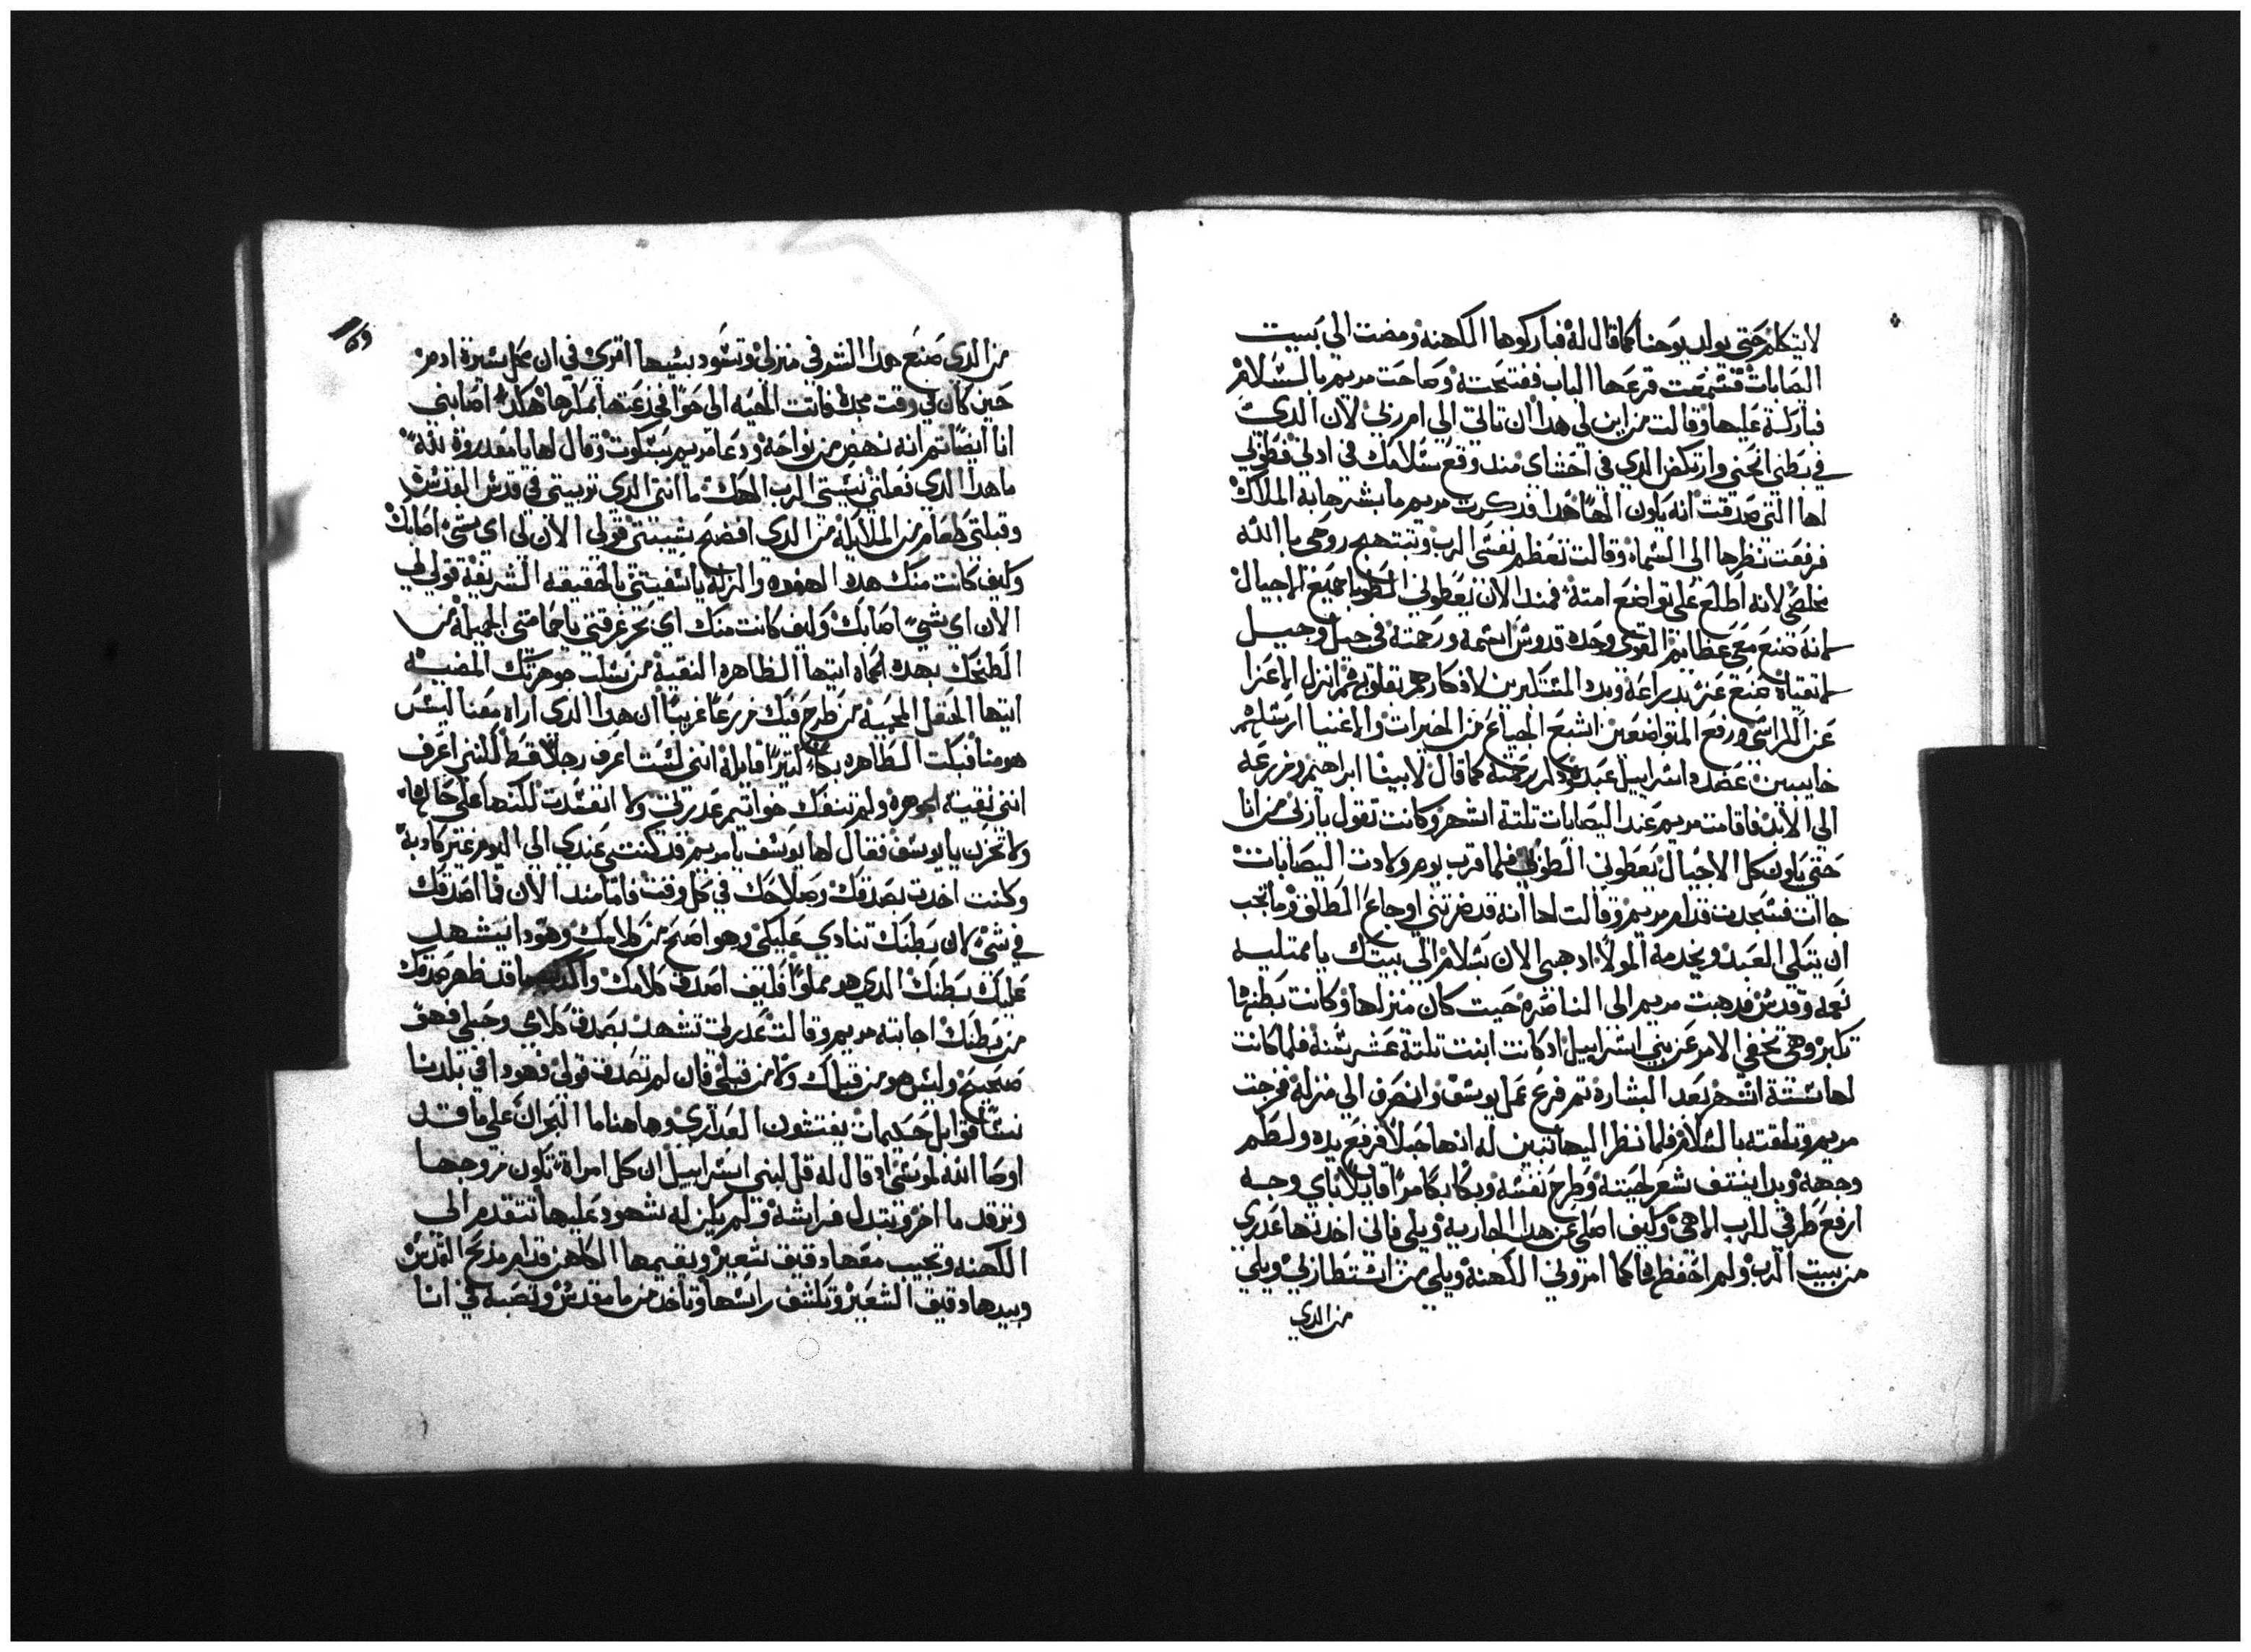 لايتكلم حتى يولد يوحنا كما قال له فباركوها الكهنه ومضت الي بييت
اليصابات فسمعت قرعها الباب ففتحته وصاحت مريم بالسلام
فباركة عليها وقالت من اين لي هدا ان تاتي الي ام ربي لان الدي
في بطني انحني وارتكض الدي في احشاي مند وقع سلامك في ادني فطوبي
لها التي صدقت انه يكون الهًا هدا فدكرت مريم ما بشرها به الملاك
فرفعت نظرها الي السماء وقالت تعظم نفسي الرب وتبتهج روحي باالله
مخلصي لانه اطلع علي تواضع امته فمند الان يعطوني الطوبا جميع الاجيال
لانه صنع معي عظايم القوي وحده قدوس اسمه ورحمته في جيل وجيل
لاتقياه صنع عز بدراعه وبدد المستكبرين لافكارهم بقلوبهم انزل الاعزا
عن الكراسي ورفع المتواضعين اشبع الجياع من الخيرات والاغنيا ارسلهم
خايبين عضد اسراييل عبده ودكر رحمته كما قال لابينا ابراهيم وزرعه
الي الابد فاقامت مريم عند اليصابات تلتة اشهر وكانت تقول يا ربي من انا
حتي يكون كل الاجيال تعطوني الطوبي فلما قرب يوم ولادت اليصابات
جاات فسجدت قدام مريم وقالت لها انه قد ضرتني اوجاع الطلق وما يجب
ان يتكي العبد ويخدمه المولا ادهبي الان بسلام الي بيتك يا ممتليه
نعمه وقدس فدهبت مريم الي الناصره حيت كان منزلها وكانت بطنها
تكبر وهي تخفي الامر عن بني اسراييل ادكانت ابنت تلتة عشر سنه فلما كانت
لها ستة اشهر بعد البشاره تم فرغ عمل يوسف وانصرف الي منزله فخرجت
مريم وتلقته بالسلام فلما نظر اليها تبين له انها حبلا فرفع يده ولطم
وجهه وبدا ينتف شعر لحيته وطرح نفسه وبكا بكا مرا قايلا باي وجه
ارفع طرفي للرب الاهي وكيف اصلي عن هدا الجاريه ويلي فاني اخدتها عدري
من بييت الرب ولم احفظها كما امروني الكهنة ويلي من استطازني ويلي
من الدي

159
من الدي صنع هدا الشر في منزلي وتسود بشيها اتري في ان كل سيرة ادم
حين كان في وقت مجده فاتت الحيه الي حوا فخدعتها بمكرها هكدا اصابني
انا ايضا تم انه نهض من نواحه ودعا مريم بسكوت وقال لها يا مقدروة لله
ما هدا الدي فعلتي نسيتي الرب الهك ما انتي الدي تربيتي في قدس القدس
وقبلتي طعام من الملايكة من الدي افضح شيبتي قولي الان لي اي شي اصابك
وكيف كانت منك هده الهفوه والزله يا شفيتي بالحقيقه الشريفة قولي لي
الان اي شي اصابك وكيف كانت منك اي بحر غرقتي يا حمامتي الجميله من
الطخك بهده الحماه ايتها الطاهره النقية من سلب جوهرتك المضيه
ايتها الحقل المحبيه من طرح فيك زرعا غريبا ان هدا الدي اراه معنا ليس
هو منا فبكت الطاهره بكاء كتيرًا قايلة انني لست اعرف رجلا قط لكنني اعرف
انني نقية الجوهره ولم تنفك خواتيم عدريتي ولا انفسدت لكنها علي حالها
ولا تحزن يا يوسف فقال لها يوسف يا مريم قد كنتي عندي الي اليوم غير كادبة
وكنت اخدت بصدقك وصلاحك في كل وقت فاما مند الان فما اصدقك
في شي لان بطنك تنادي عليكي وهو اصح من كلامك وهودا يشهد
عليك بطنك الدي هو مملوا فكيف اصدق كلامك والكدب ما قد ظهر صدقك
من بطنك اجابته مريم وقالت عدريتي تشهد بصدق كلامي وحبلي فهو
صحيح وليس هو من قبلك ولا من قبلي فان لم تصدق قولي فهودا في بلدنا
نسًا قوابل حكيمات يفتشون العداري وهاهنا ما البحران علي ما قد
اوصا الله لموسي اد قال له قل لبني اسراييل ان كل امراة تكون مزوجها
وترقد ما اخر وتبدل فراشه ولم يكن له شهود عليها تتقدم الي
الكهنه وتجيب معها دقيق شعير ويقيمها الكاهن قدام مدبح القدس
وبيدها دقيق الشعير وتكشف راسها وتاخد من ما مقدس وتصبه في انا